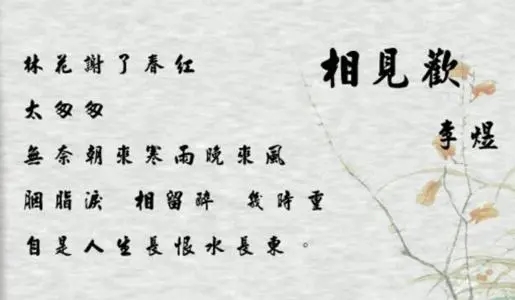 相見歡
李煜
林花謝了春紅
太匆匆
無奈朝來寒雨晚來風
胭脂淚 相留醉 幾時重
自是人生長恨水長東。